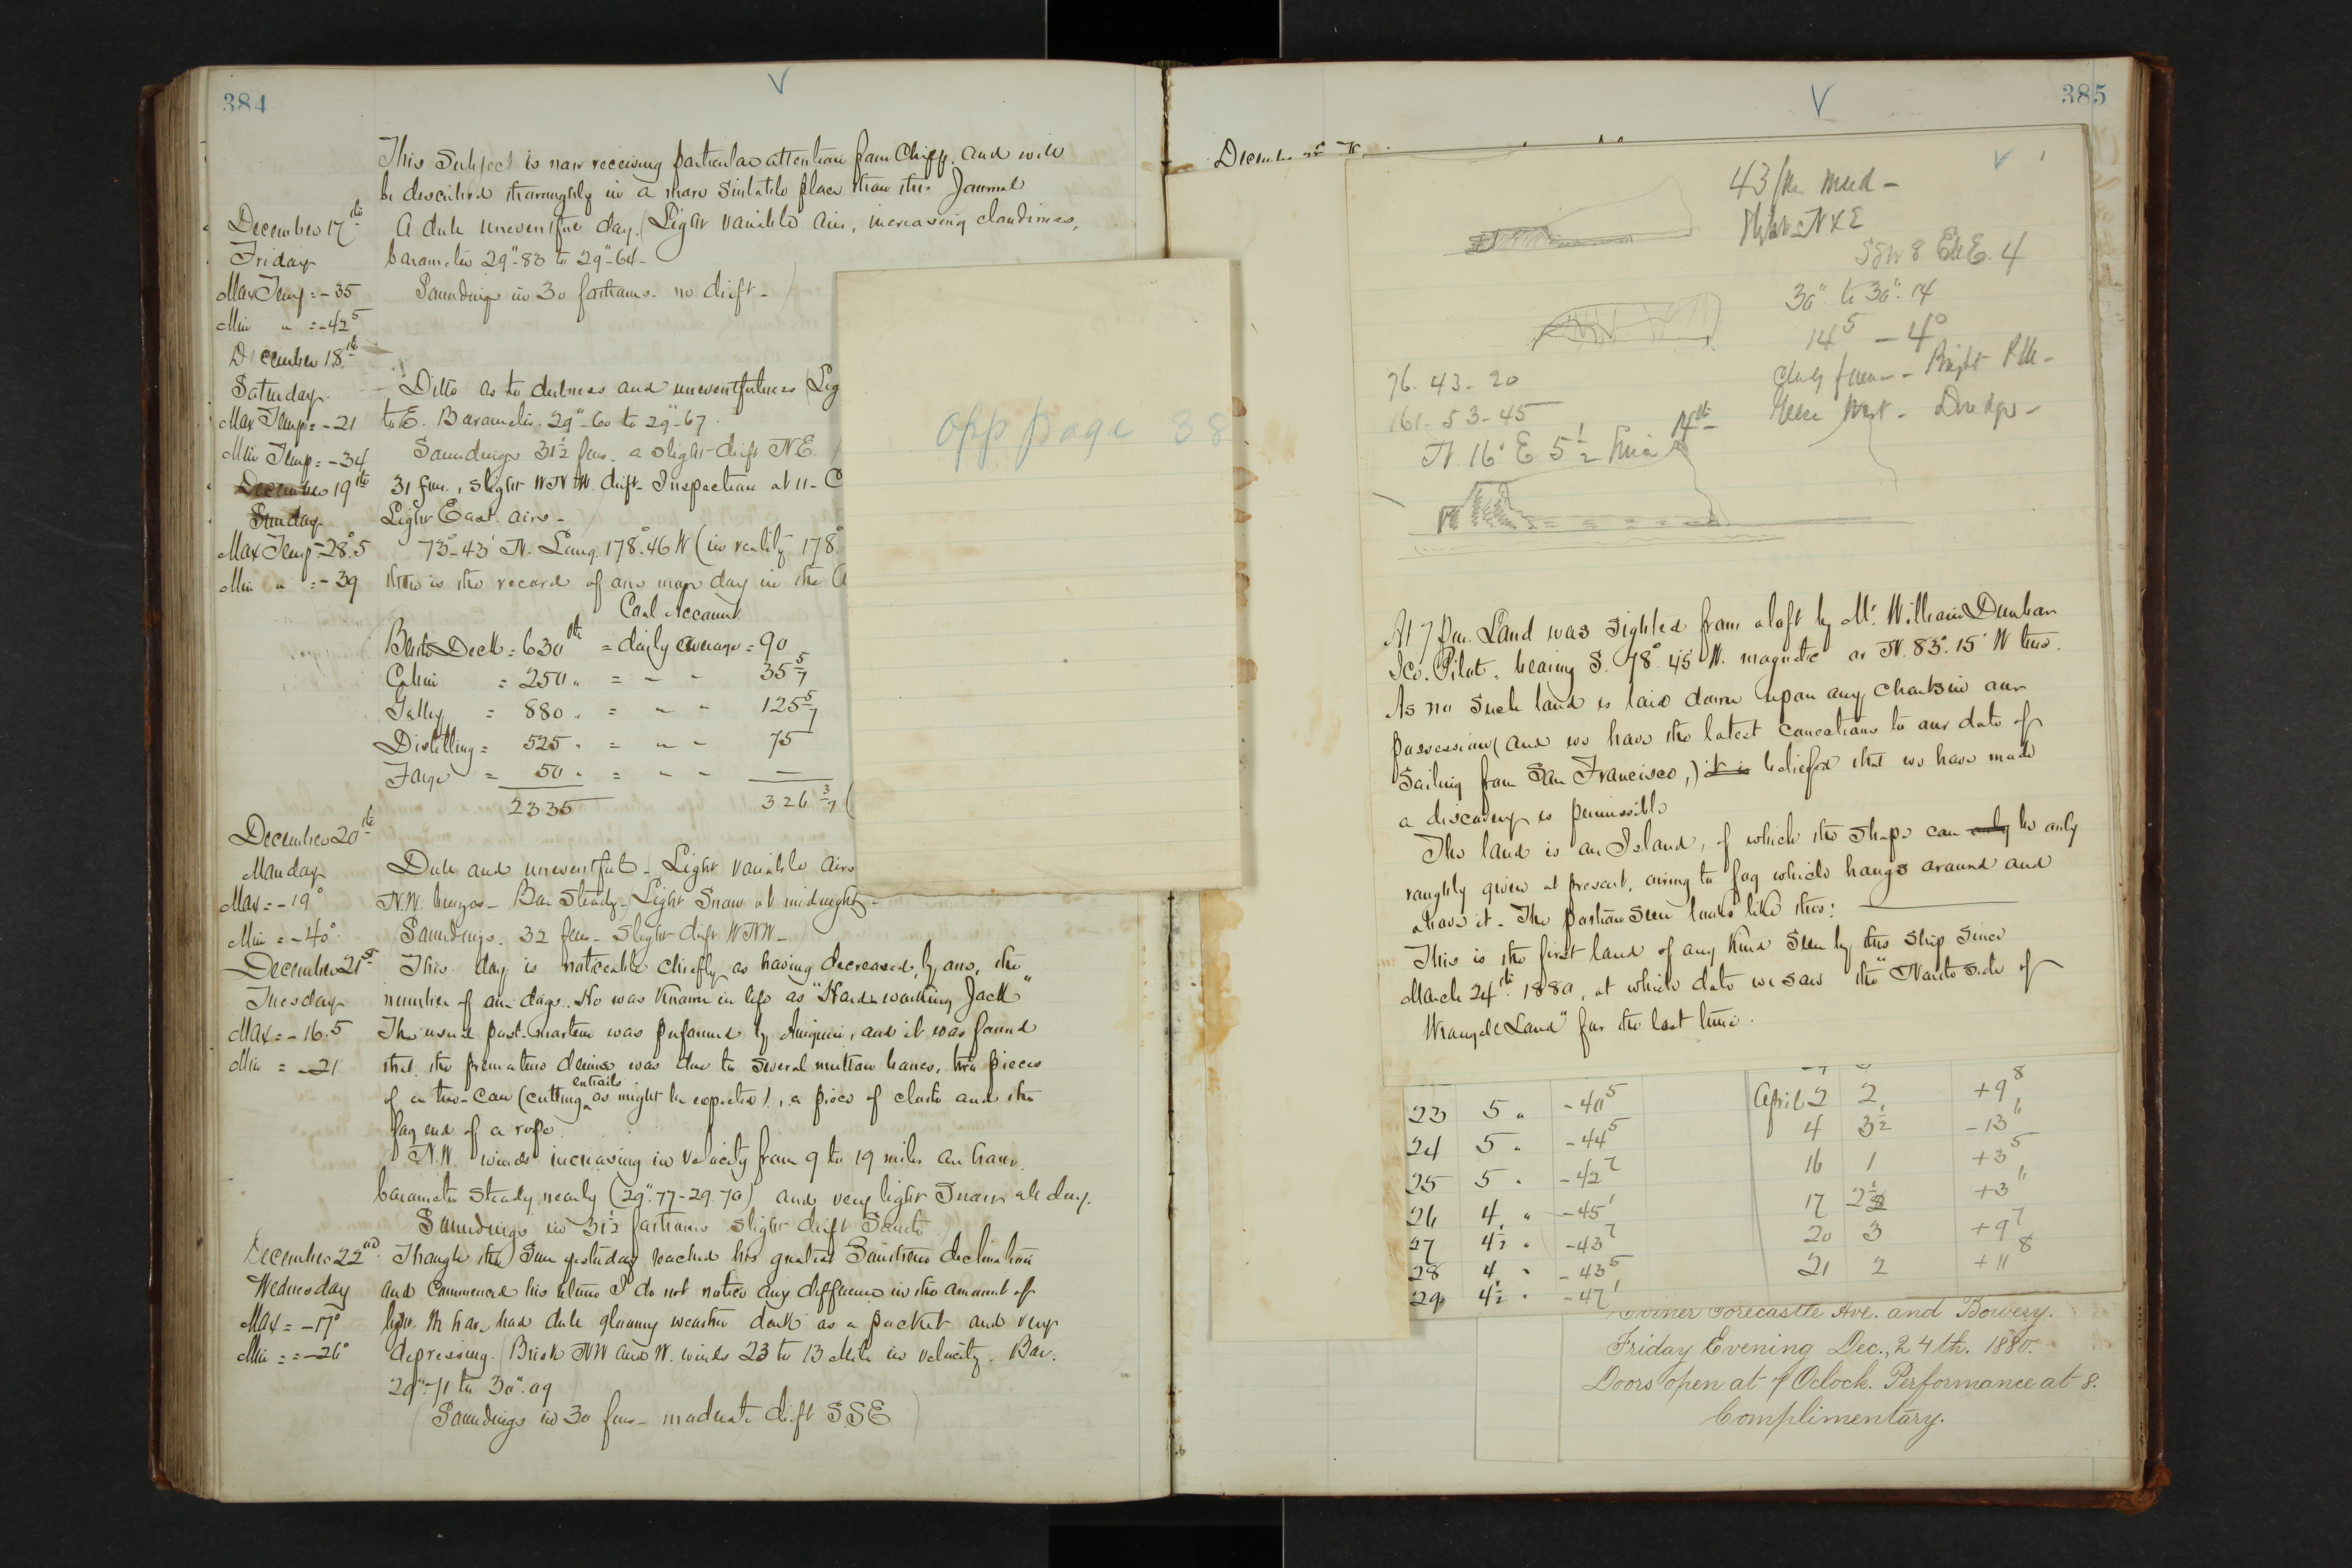 384
V
This Subject is now receiving particular attention from Chipp, and will
be described thoroughly in a more suitable place than this Journal
December 17th
Friday
Max Temp = -35
Min " = -42.5
A dull uneventful day. (Light variable airs, increasing cloudiness,
barometer 29".83 to 29".64-
Soundings in 30 fathoms. no drift-)
December 18th
Saturday.
Max Temp = -21
Min Temp = -34
Ditto as to dulness and uneventfulness (Lig
to E. Barometer. 29".60 to 29".67.
Soundings 31½ fms. a slight drift N.E.
December 19th
Sunday
Max Temp -28°.5
Min " = -39
31 fms., slight WNW. drift- Inspection at 11- C
Light East airs-
73°-43' N. Long. 178°.46 W (in reality 178°
then is the record of one more day in the
Coal Account
Berth Deck = 630 lbs = daily average = 90
Cabin = 250 " = " " 35 5/7
Galley = 880 " = " " 125 5/7
Distilling = 525 " = " " 75
Forge = 50 " = " " —
2335 326 3/7 (
December 20th
Monday
Max = -19°
Min = -40°
Dull and uneventful- Light variable airs
N.W. breezes- Bar Steady-) Light Snow at midnight-
Soundings. 32 fms- slight drift WNW-
December 21st
Tuesday
Max = -16.5
Min = -21
This day is noticeable chiefly as having decreased, by one, the
number of our dogs. He was known in life as "Hard working Jack"
The usual post-mortem was performed by Aniguin, and it was found
that the premature demise was due to several mutton bones, two pieces
of a tin-can (cutting entrails as might be expected), a piece of cloth and the
fag end of a rope.
N.W. winds increasing in velocity from 9 to 19 miles an hour.
barometer steady nearly (29".77-29.70) and very light Snow all day.
Soundings in 31½ fathoms slight drift South
December 22nd
Wednesday
Max = -17°
Min = -26°
Though the Sun yesterday reached his greatest Southern declination
and commenced his return I do not notice any difference in the amount of
light. We have had dull gloomy weather dark as a pocket and very
depressing. (Brisk NW and W. winds 23 to 13 miles in velocity. Bar.
29".71 to 30".09
(Soundings in 30 fms- moderate drift SSE)
Opp page 38
385
V
December
V
43 fm mud-
N & E
SSW 8 ENE. 4
30" to 30".14
14.5 - 4°
76. 43- 20
161- 53- 45
N. 16° E 5½
14th
At 7 pm. Land was sighted from aloft by Mr. William Dunbar
Ice. Pilot. bearing S. 78°. 45' W. magnetic or N. 83°. 15' W true.
As no such land is laid down upon any charts in our
possession (and we have the latest corrections to our date of
sailing from San Francisco,) it is belief that we have made
a discovery is permissible
The land is an Island, of which the shape can only be only
roughly given at present, owing to fog which hangs around and
above it. The portion seen looks like this:
This is the first land of any kind seen by this ship since
March 24th 1880, at which date we saw the "North side of
Wrangell Land" for the last time.
23 5 " -40.5 April 2 2 +9.8
24 5 " -44.5 4 3½ -13
25 5 " -42.7 16 1 +3.5
26 4 " -45.1 17 2½ +3
27 4½ " -43.7 20 3 +9.7
28 4 " -43.5 21 2 +11.8
29 4½ " -47.1
Corner Forecastle Ave. and Bowery.
Friday Evening Dec., 24th. 1880.
Doors open at 7 Oclock. Performance at 8.
Complimentary.